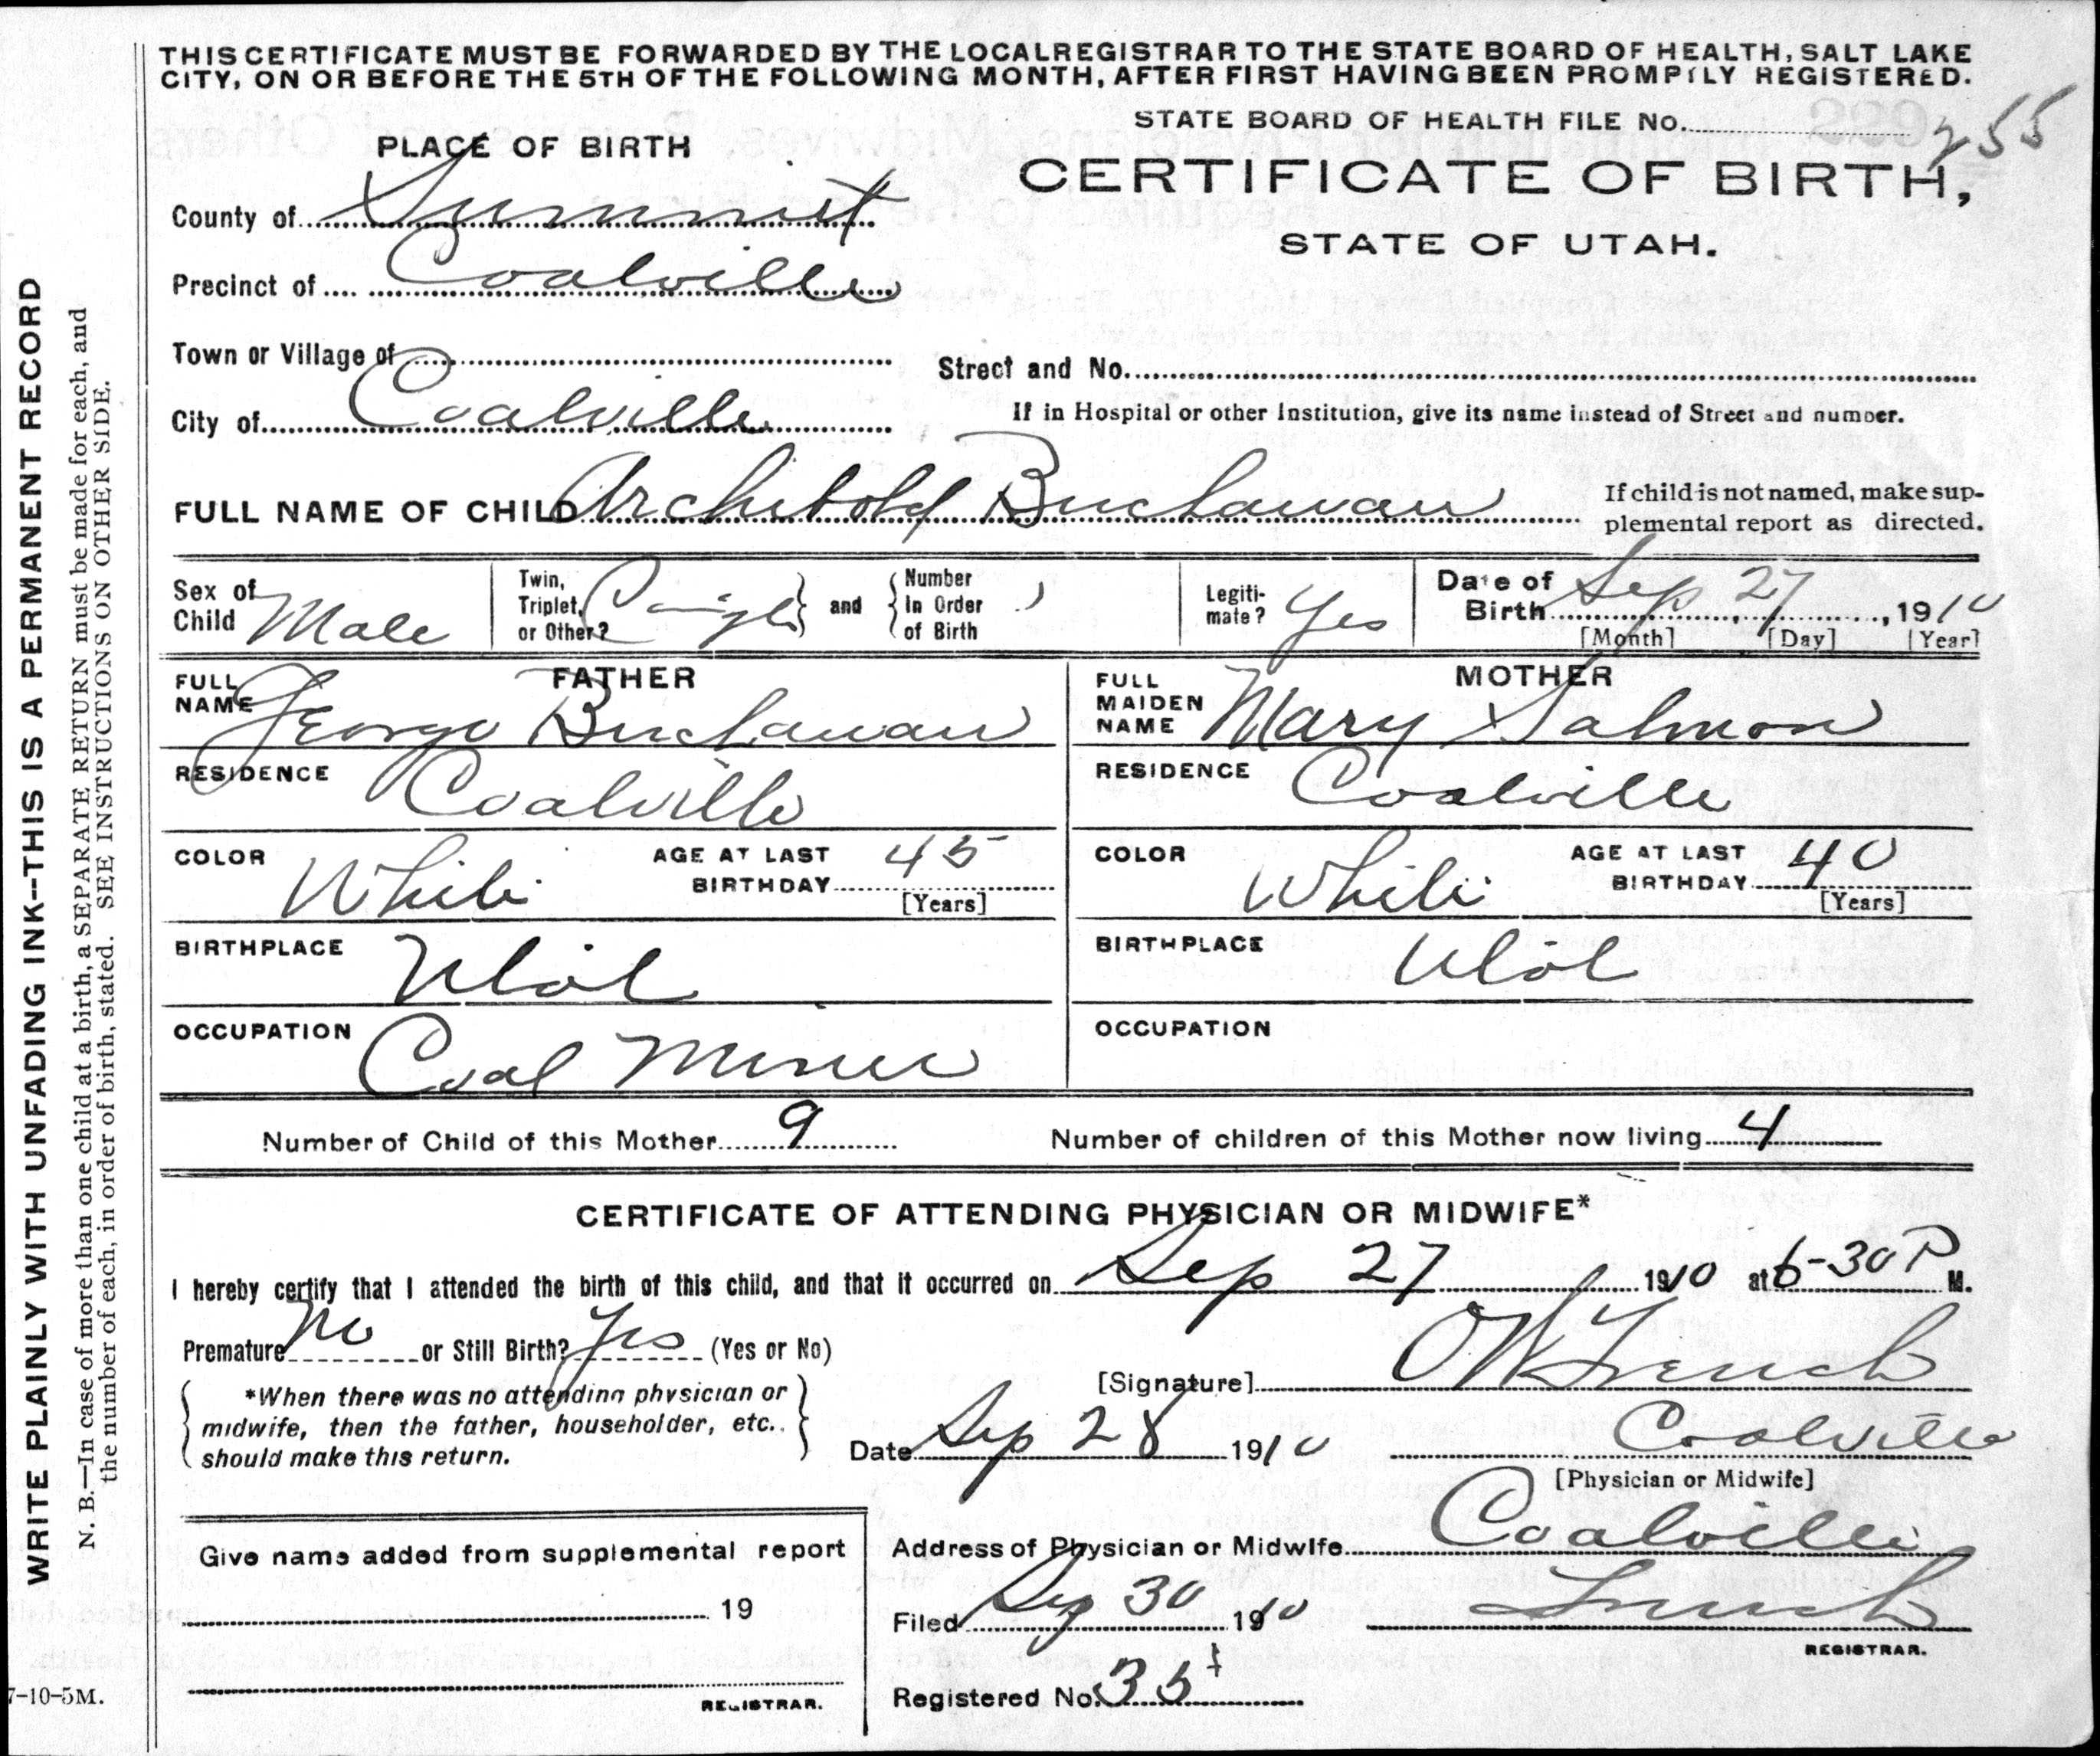 THIS CERTIFICATE MUST BE FORWARDED BY THE LOCAL REGISTRAR TO THE STATE BOARD OF HEALTH, SALT LAKE
CITY, ON OR BEFORE THE 5TH OF THE FOLLOWING MONTH, AFTER FIRST HAVING BEEN PROMPTLY REGISTERED.
STATE BOARD OF HEALTH FILE No. 255
PLACE OF BIRTH
CERTIFICATE OF BIRTH,
STATE OF UTAH.
County of Summit
Precinct of Coalville
Town or Village of
Street and No.
City of Coalville
If in Hospital or other Institution, give its name instead of Street and number.
FULL NAME OF CHILD Archibold Buchanan
If child is not named, make sup-
plemental report as directed.
Sex of
Child Male
Twin,
Triplet,
or Other?
and
Number
In Order
of Birth
Legiti-
mate? Yes
Date of
Birth Sep 27, 1910
[Month] [Day] [Year]
FATHER
FULL
NAME George Buchanan
RESIDENCE Coalville
COLOR White
AGE AT LAST
BIRTHDAY 45
[Years]
BIRTHPLACE Utah
OCCUPATION Coal Miner
MOTHER
FULL
MAIDEN
NAME Mary Salmon
RESIDENCE Coalville
COLOR White
AGE AT LAST
BIRTHDAY 40
[Years]
BIRTHPLACE Utah
OCCUPATION
Number of Child of this Mother 9
Number of children of this Mother now living 4
CERTIFICATE OF ATTENDING PHYSICIAN OR MIDWIFE*
I hereby certify that I attended the birth of this child, and that it occurred on Sep 27 1910 at 6-30 P M.
Premature No or Still Birth? Yes (Yes or No)
*When there was no attending physician or
midwife, then the father, householder, etc.
should make this return.
[Signature]
Date Sep 28 1910
Coalville
[Physician or Midwife]
Address of Physician or Midwife Coalville
Filed Sep 30 1910
REGISTRAR.
Registered No. 35
Give name added from supplemental report
19
REGISTRAR.
WRITE PLAINLY WITH UNFADING INK—THIS IS A PERMANENT RECORD
N. B.—In case of more than one child at a birth, a SEPARATE RETURN must be made for each, and
the number of each, in order of birth, stated. SEE INSTRUCTIONS ON OTHER SIDE.
7-10-5M.